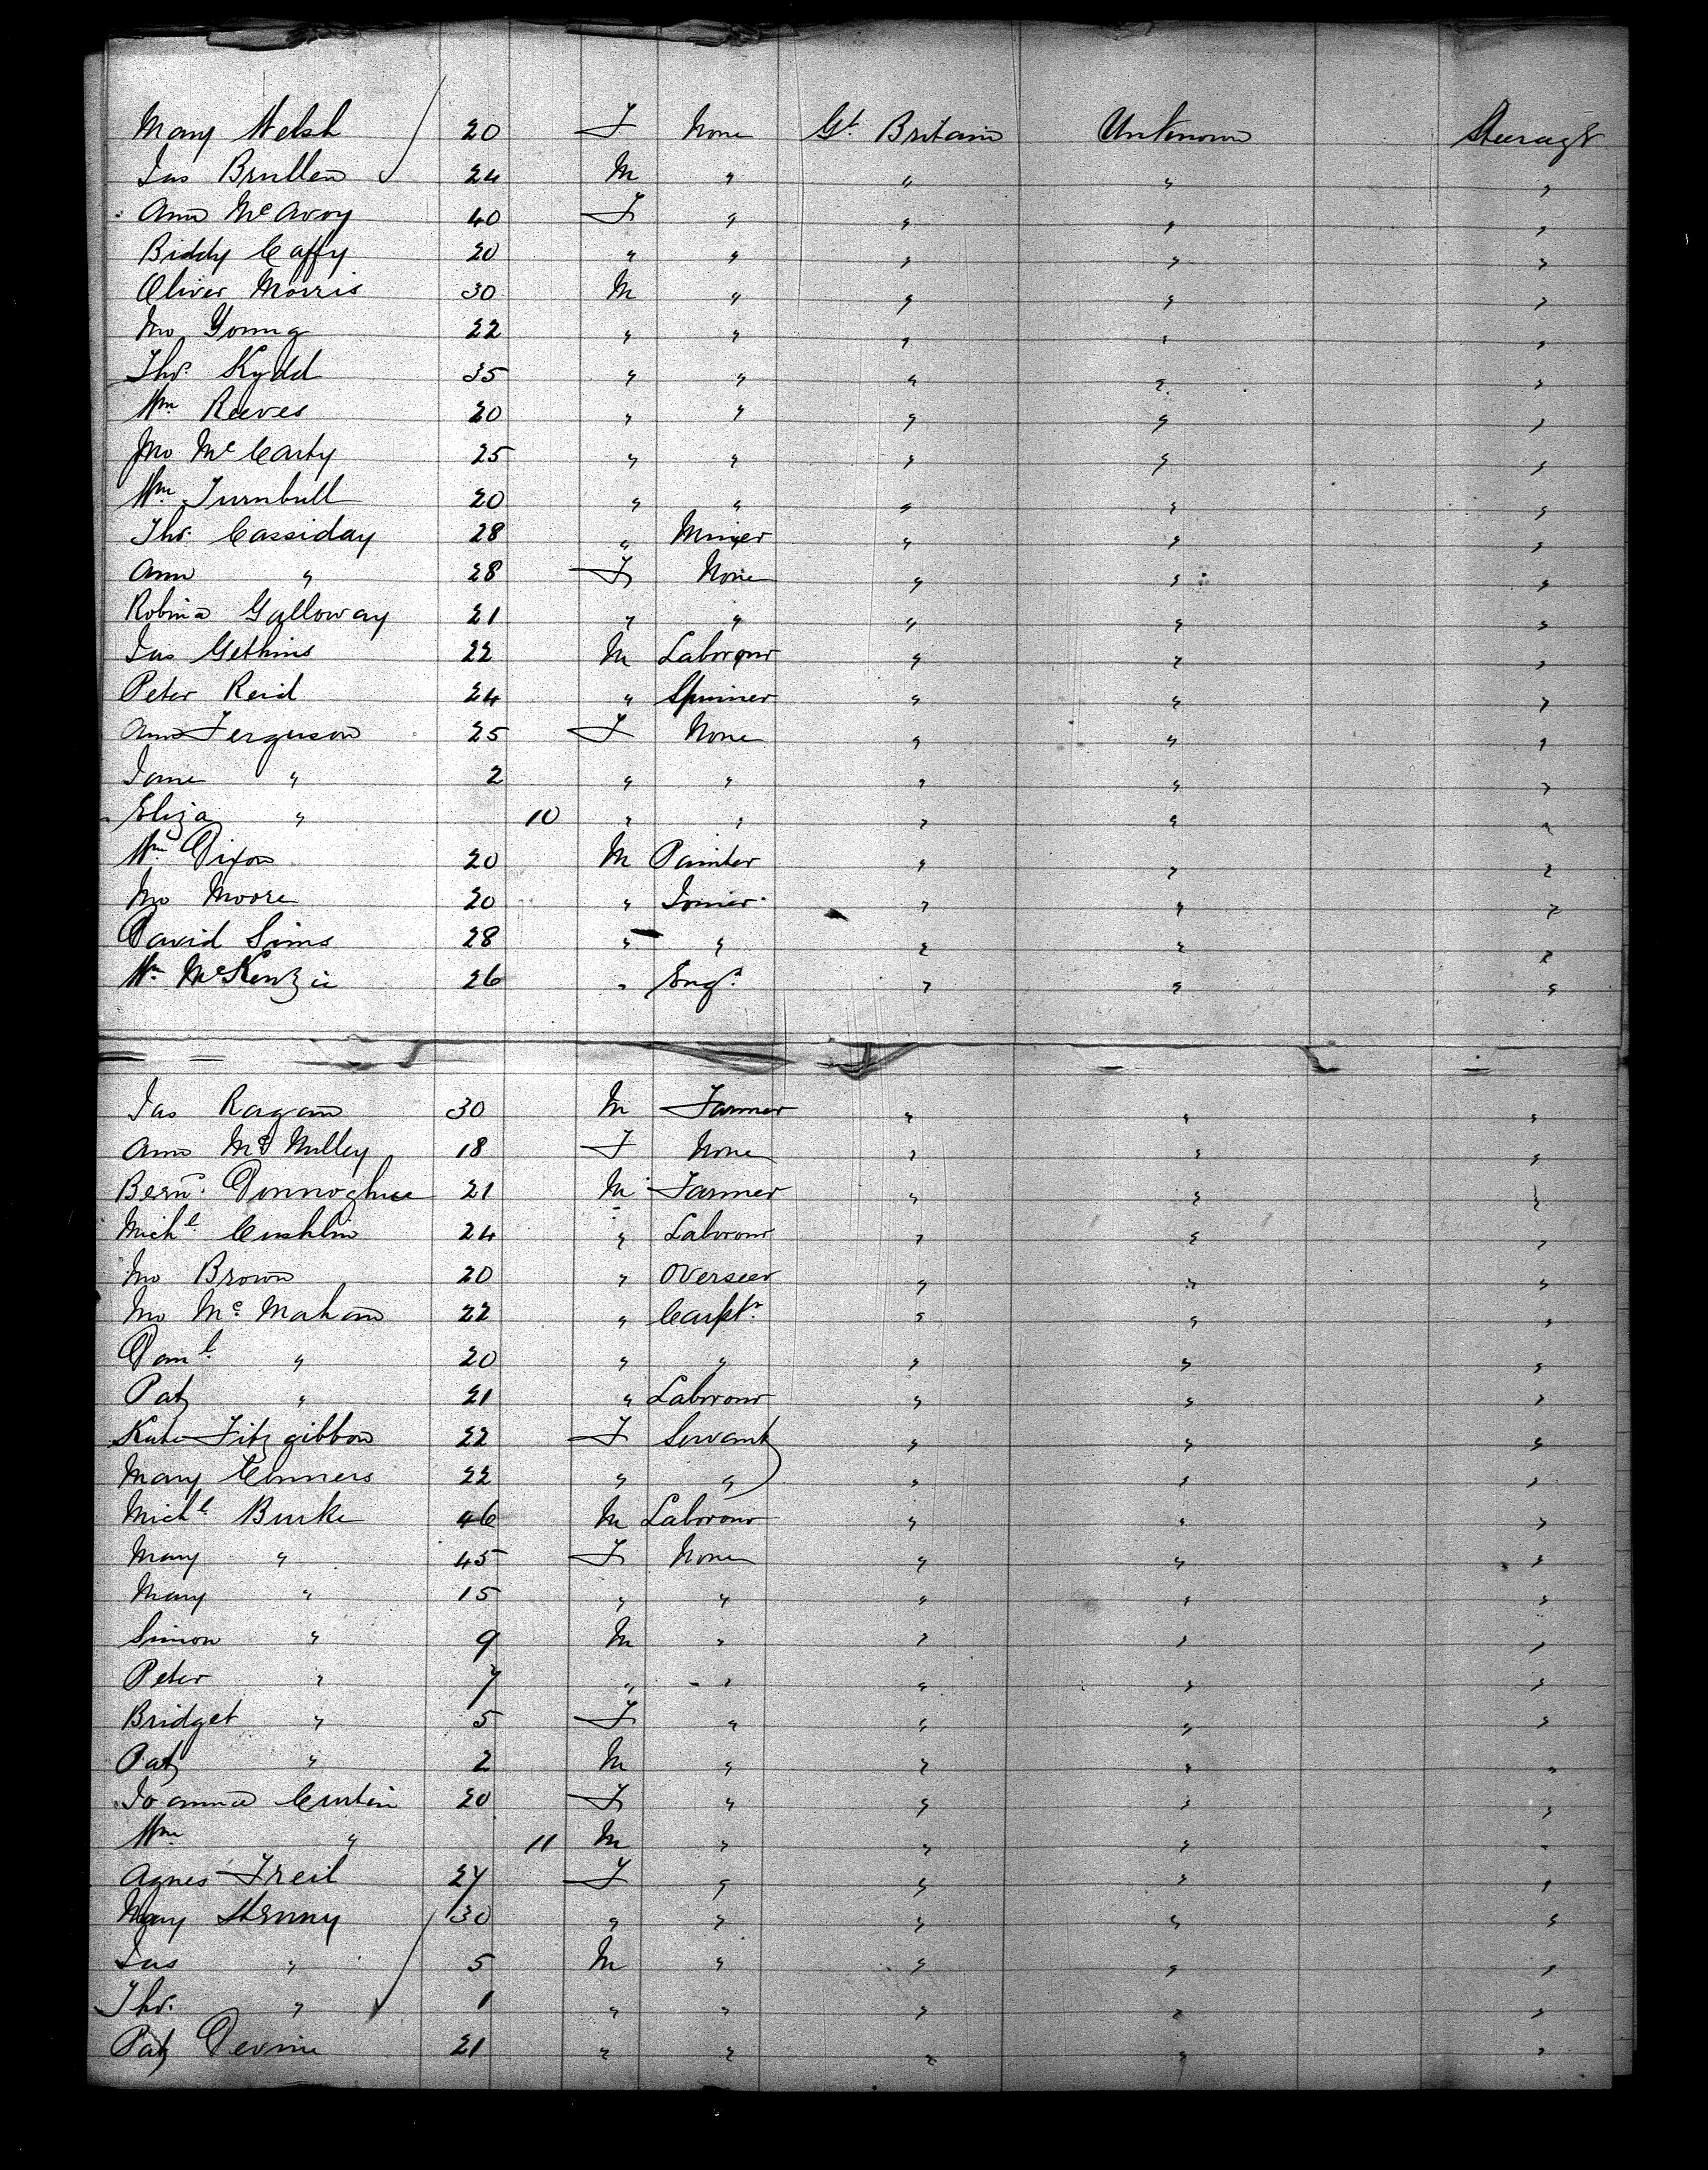 Mary Welsh 20 F None Gt Britain Unknown Steerage
Jas Brullen 24 M " " " "
Ann McAvoy 40 F " " " "
Biddy Caffy 20 " " " " "
Oliver Morris 30 M " " " "
Jno Young 22 " " " " "
Thos. Kydd 35 " " " " "
Wm Reeves 20 " " " " "
Jno McCarty 25 " " " " "
Wm Turnbull 20 " " " " "
Thos. Cassiday 28 " Miner " " "
Ann " 28 F None " " "
Robina Galloway 21 " " " " "
Jas Gethins 22 M Labourer " " "
Peter Reid 24 " Spinner " " "
Ann Ferguson 25 F None " " "
Jane " 2 " " " " "
Eliza " 10 " " " " "
Wm Dixon 20 M Painter " " "
Jno Moore 20 " Joiner " " "
David Sims 28 " " " " "
Wm McKenzie 26 " Engr. " " "
Jas Ragan 30 M Farmer " " "
Ann Mc Nulley 18 F None " " "
Bernd. Donnoghue 21 M Farmer " " "
Michl Cushlin 24 " Labour " " "
Jno Brown 20 " Overseer " " "
Jno Mc Mahan 22 " Carptr. " " "
Danl. " 20 " " " " "
Patk " 21 " Labour " " "
Kate Fitzgibbon 22 F Servant " " "
Mary Conners 22 " " " " "
Michl Burke 46 M Labour " " "
Mary " 45 F None " " "
Mary " 15 " " " " "
Simon " 9 M " " " "
Peter " 7 " " " " "
Bridget " 5 F " " " "
Patk " 2 M " " " "
Joanna Curtin 20 F " " " "
Wm " 11 M " " " "
Agnes Freil 27 F " " " "
Mary 30 " " " " "
Jas " 5 M " " " "
Thos. " 1 " " " " "
Patk Devine 21 " " " " "